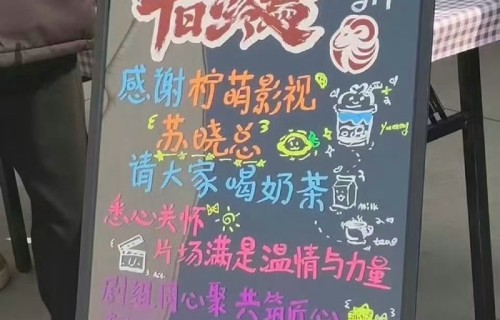 感谢柠萌影视
苏晓总
请大家喝奶茶
yummy
milk
悉心关怀
tang
片场满足温情与力量
剧组同心聚 共筑匠心